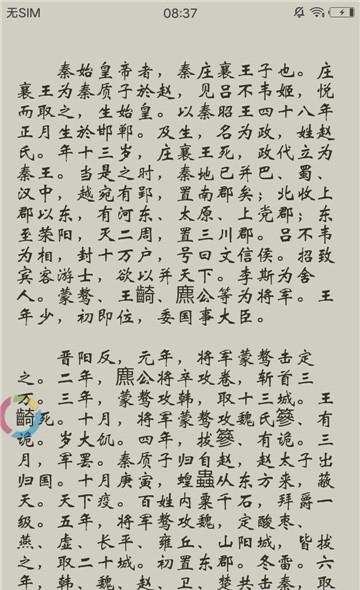 无SIM 08:37
秦始皇帝者，秦庄襄王子也。庄
襄王为秦质子於赵，见吕不韦姬，悦
而取之，生始皇。以秦昭王四十八年
正月生於邯郸。及生，名为政，姓赵
氏。年十三岁，庄襄王死，政代立为
秦王。当是之时，秦地已并巴、蜀、
汉中，越宛有郢，置南郡矣；北收上
郡以东，有河东、太原、上党郡；东
至荥阳，灭二周，置三川郡。吕不韦
为相，封十万户，号曰文信侯。招致
宾客游士，欲以并天下。李斯为舍
人。蒙骜、王齮、麃公等为将军。王
年少，初即位，委国事大臣。
晋阳反，元年，将军蒙骜击定
之。二年，麃公将卒攻卷，斩首三
万。三年，蒙骜攻韩，取十三城。王
齮死。十月，将军蒙骜攻魏氏篸、有
诡。岁大饥。四年，拔篸、有诡。三
月，军罢。秦质子归自赵，赵太子出
归国。十月庚寅，蝗蟲从东方来，蔽
天。天下疫。百姓内粟千石，拜爵一
级。五年，将军骜攻魏，定酸枣、
燕、虚、长平、雍丘、山阳城，皆拔
之，取二十城。初置东郡。冬雷。六
年，韩、魏、赵、卫、楚共击秦，取